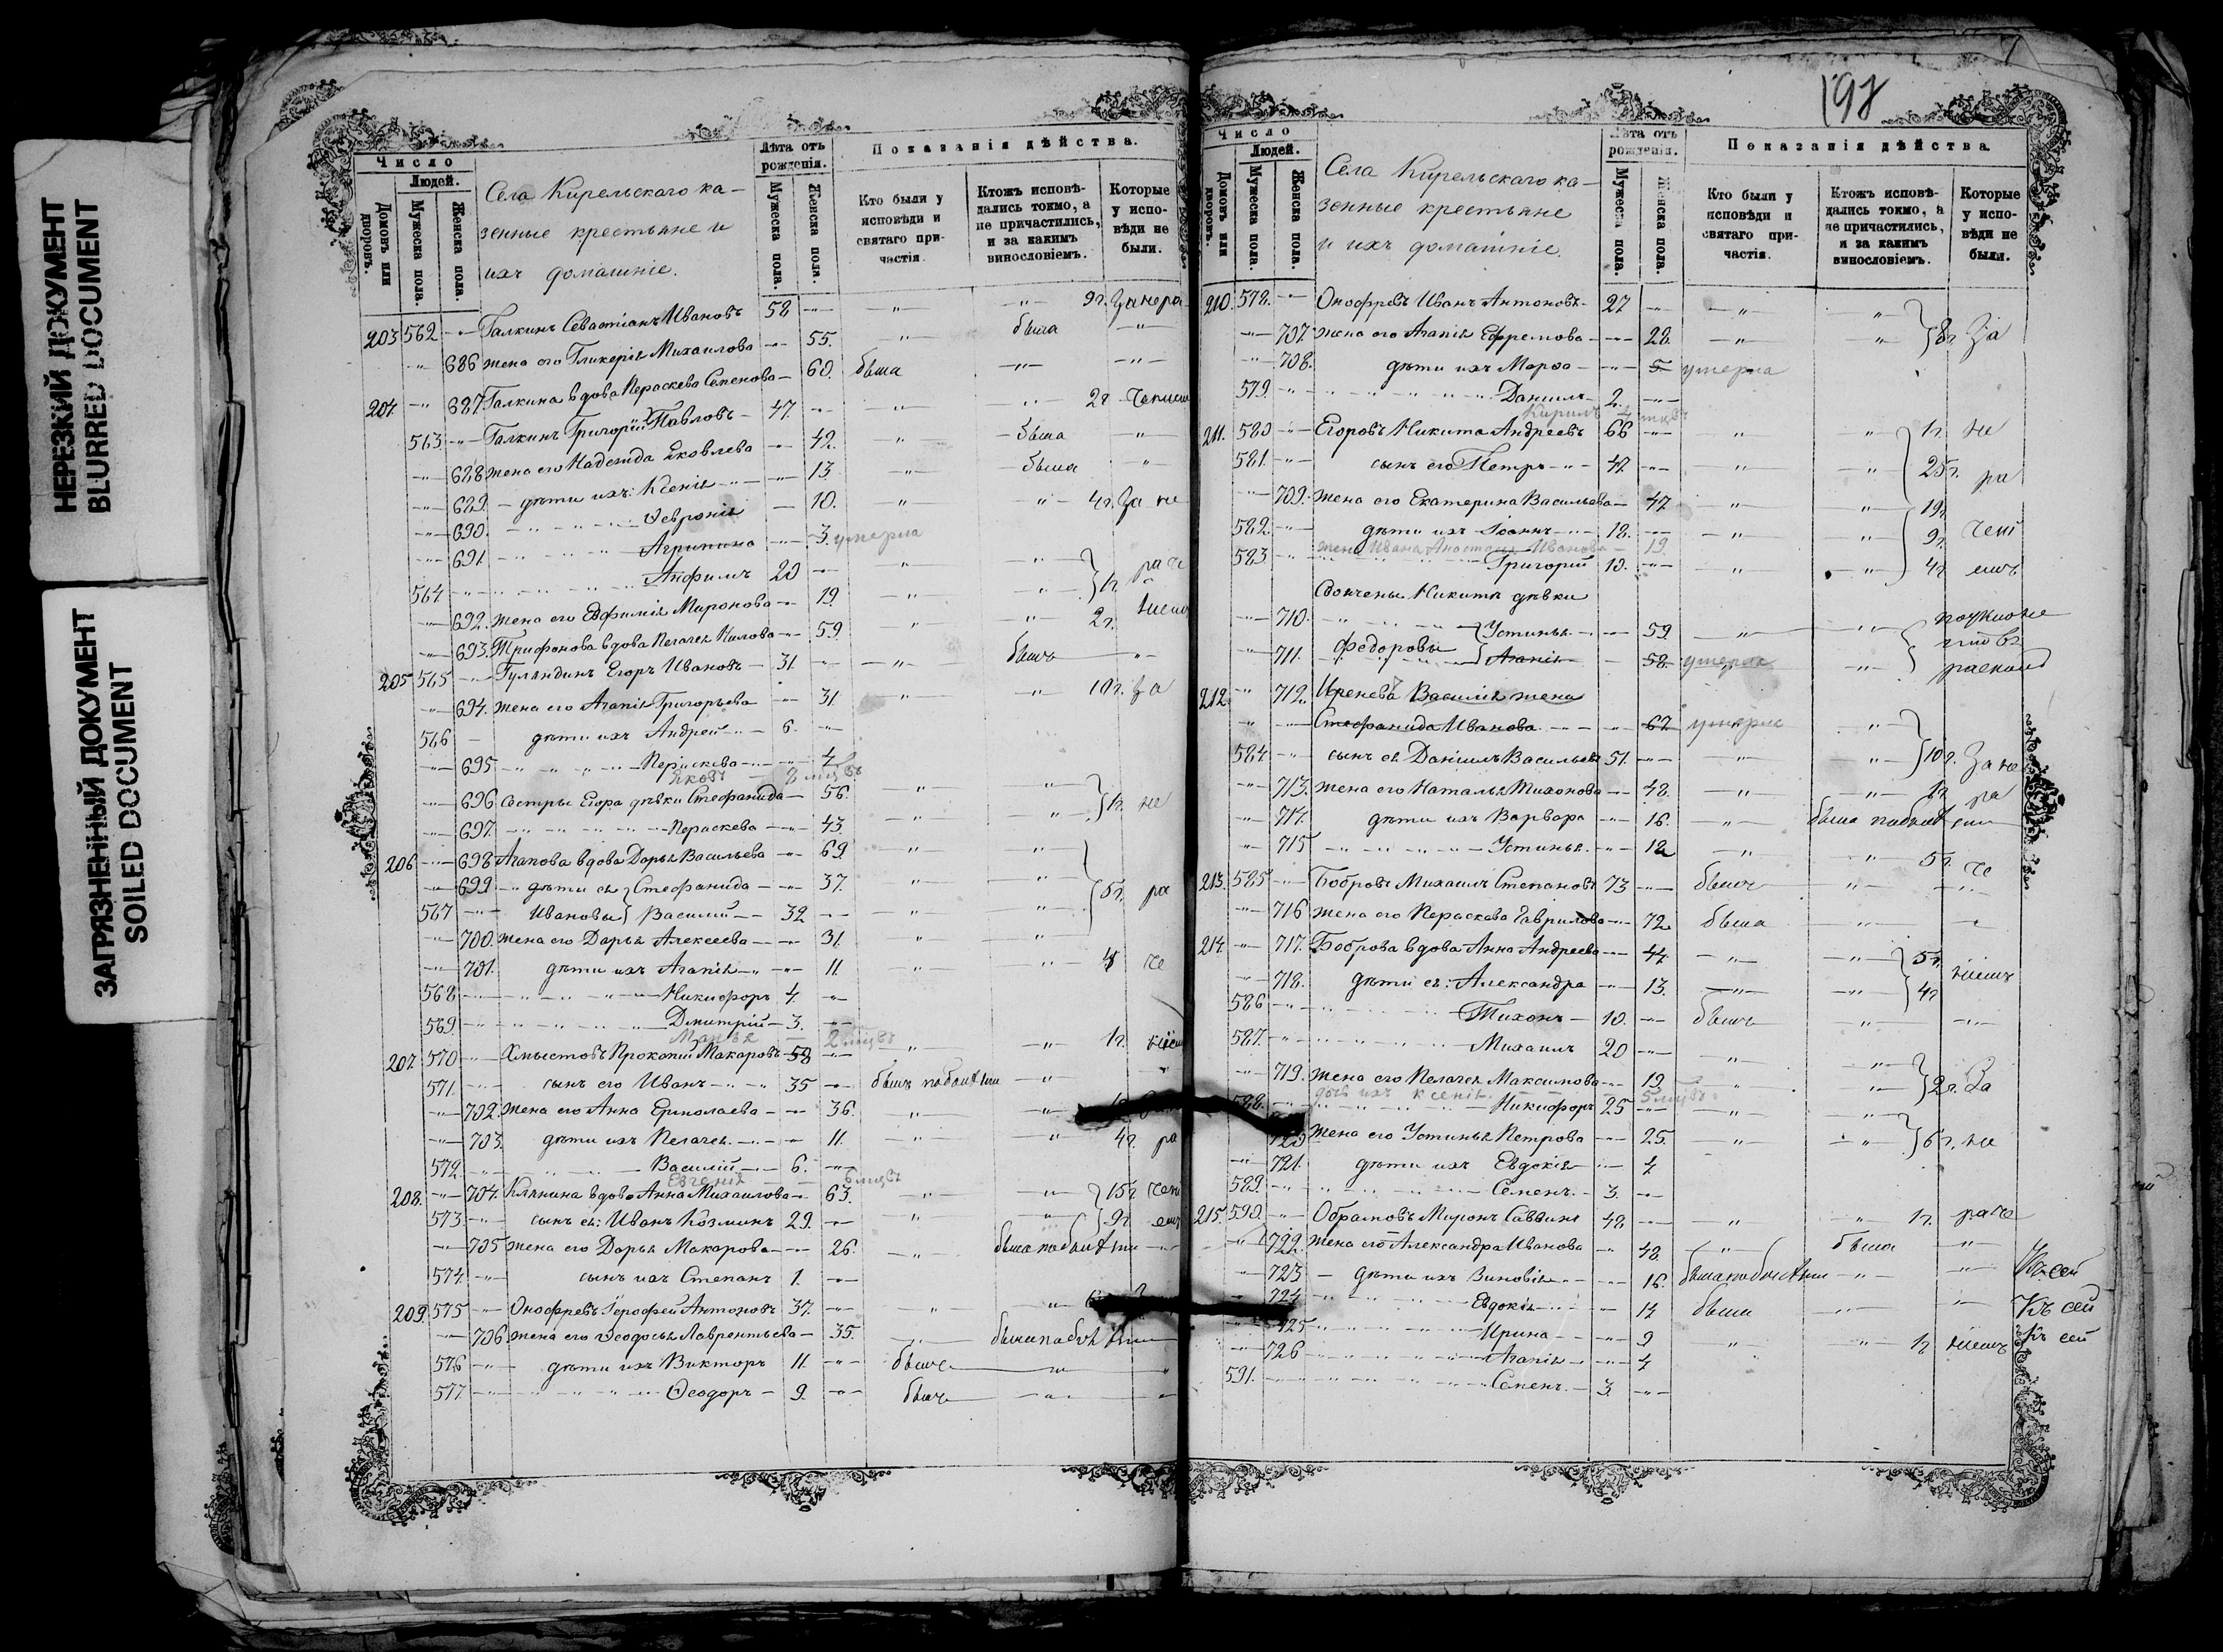 НЕРЕЗКИЙ ДОКУМЕНТ
BLURRED DOCUMENT
ЗАГРЯЗНЕННЫЙ ДОКУМЕНТ
SOILED DOCUMENT
Число
Людей.
Домовъ или дворовъ.
Мужеска пола.
Женска пола.
Села Кирельскаго ка-
зенные крестьяне и
ихъ домашніе.
Лѣта отъ рожденія.
Мужеска пола.
Женска пола.
Показанія дѣйства.
Кто были у исповѣди и святаго причастія.
Ктожъ исповѣдались токмо, а не причастились, и за какимъ винословіемъ.
Которые у исповѣди не были.
203 562 Галкинъ Севастіанъ Ивановъ 58 9 г. за нера
686 жена его Гликерія Михаилова 55. была
204 687 Галкина вдова Пераскева Семенова 60. была
563 Галкинъ Григорій Павловъ 47 2 г.
688 жена его Надежда Яковлева 42. была
689. дѣти ихъ: Ксенія 13. была
690. Февронія 10. 4 г. за не
691. Агрипина 3. умерла
564 Анфимъ 20 1 г. ра
692. жена его Евфимія Миронова 19.
693. Трифонова вдова Пелагея 59 2 г.
205 565 Гуляндинъ Егоръ Ивановъ 31. былъ
694. жена его Агапія Григорьева 31. 10 г. за
566 дѣти ихъ Андрей 6.
695 Пераскева 4
Яковъ 8 мцвъ
696 сестры Егора дѣвки Стефанида 56. 1 г. не
697. Пераскева 43.
206 698 Агапова вдова Дарья Васильева 69.
699 дѣти ея Стефанида 37. 5 г. ра
567 Ивановы Василій 32
700. жена его Дарья Алексеева 31.
701. дѣти ихъ Агапія 11. че
568 Никифоръ 4.
569 Дмитрій 3.
2 мцвъ
207 570 Хмыстовъ Прокопій Макаровъ 58 1 г.
571. сынъ его Иванъ 35 былъ
702. жена его Анна Ермолаева 36.
703. дѣти ихъ Пелагея 11. 4 г. ра
572. Василій 6.
Евгенія 6 мцвъ
208. 704. Клянина вдова Анна Михаилова 63. 15 г.
573 сынъ ея: Иванъ Козминъ 29. 9 г.
705 жена его Дарья Макарова 26. была
574. сынъ ихъ Степанъ 1.
209. 575 Онофревъ Ерофей Антоновъ 37.
706. жена его Феодосья Лаврентьева 35. была
576 дѣти ихъ Викторъ 11. былъ
577. Феодоръ 9. былъ
7
197
Число
Людей.
Домовъ или дворовъ.
Мужеска пола.
Женска пола.
Села Кирельскаго ка-
зенные крестьяне
и ихъ домашніе.
Лѣта отъ рожденія.
Мужеска пола.
Женска пола.
Показанія дѣйства.
Кто были у исповѣди и святаго причастія.
Ктожъ исповѣдались токмо, а не причастились, и за какимъ винословіемъ.
Которые у исповѣди не были.
210. 578. Онофревъ Иванъ Антоновъ 27
707. жена его Агапія Ефремова 28. 8 г. за
708. дѣти ихъ Марфа 5. умерла
579. Даніилъ 2.
Кирилъ 4 мцвъ
211. 580 Егоровъ Никита Андреевъ 66 1 г. не
581. сынъ его Петръ 47. 25 г. ра
709. жена его Екатерина Васильева 47 19 г.
582. дѣти ихъ Іоаннъ 18. 9 г.
жена Ивана Анастасія Иванова 19.
583 Григорій 10. 4 г.
Своячены Никиты дѣвки
710. Устинья 59
711. Федоровы Агапія 58. умерла
212. 712. Василія жена
Стефанида Иванова 67. умерла
584 сынъ ея Даніилъ Васильевъ 51. 10 г. за не
713. жена его Наталья Тихонова 48. ра
714. дѣти ихъ Варвара 16. была
715 Устинья 12 5 г. че
213. 585 Бобровъ Михаилъ Степановъ 73 былъ
716 жена его Пераскева Гаврилова 72 была
214. 717. Боброва вдова Анна Андреева 44. 5 г.
718. дѣти ея: Александра 13. 4 г.
586 Тихонъ 10. былъ
587. Михаилъ 20
719. жена его Пелагея Максимова 19 2 г. за
дочь ихъ Ксенія 5 мцвъ
588. Никифоръ 25
720 жена его Устинья Петрова 25. 6 г. не
721. дѣти ихъ Евдокія 4
589. Семенъ 3.
215. 590. Обрамовъ Миронъ Саввинъ 48 1 г.
722. жена его Александра Иванова 48. была
723 дѣти ихъ Зиновія 16.
724 Евдокія 14 была
725 Ирина 9 1 г.
726 Агапія 4
591. Семенъ 3